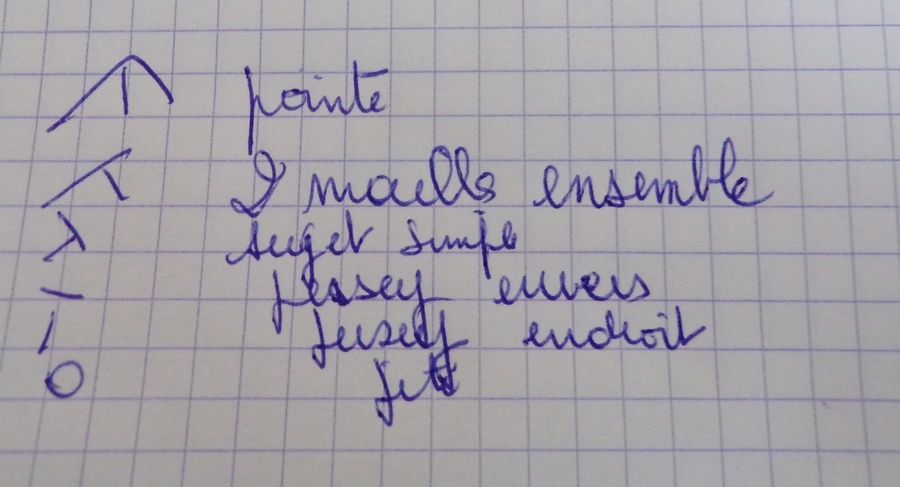 pointe
2 mailles ensemble
surjet simple
jersey envers
jersey endroit
O jeté